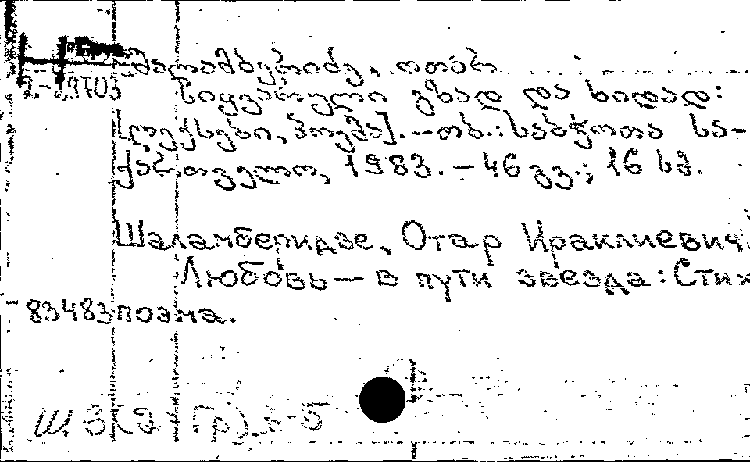 შალამბერიძე, ოთარ
სიყვარული გზად და ხიდად:
[ლექსები, პოემა].—თბ.: საბჭოთა სა-
ქართველო, 1983.—46 გვ.; 16 სმ.
Шаламберидзе, Отар Ираклиевич.
Любовь — в пути звезда: Стих
83483 поэма.
Ш 3(2 Гр)